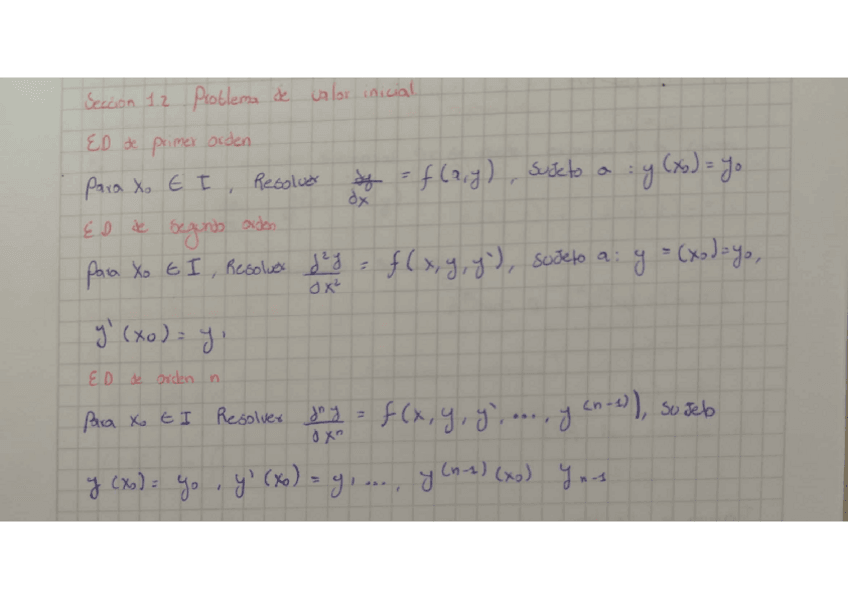 Sección 1.2 Problema de valor inicial
ED de primer orden
Para x₀ ∈ I, Resolver dy/dx = f(x,y), sujeto a: y(x₀) = y₀
ED de segundo orden
Para x₀ ∈ I, Resolver d²y/dx² = f(x, y, y'), sujeto a: y = (x₀) = y₀,
y'(x₀) = y₁
ED de orden n
Para x₀ ∈ I Resolver dⁿy/dxⁿ = f(x, y, y', ..., y⁽ⁿ⁻¹⁾), sujeto
y(x₀) = y₀, y'(x₀) = y₁ ..., y⁽ⁿ⁻¹⁾(x₀) yₙ₋₁